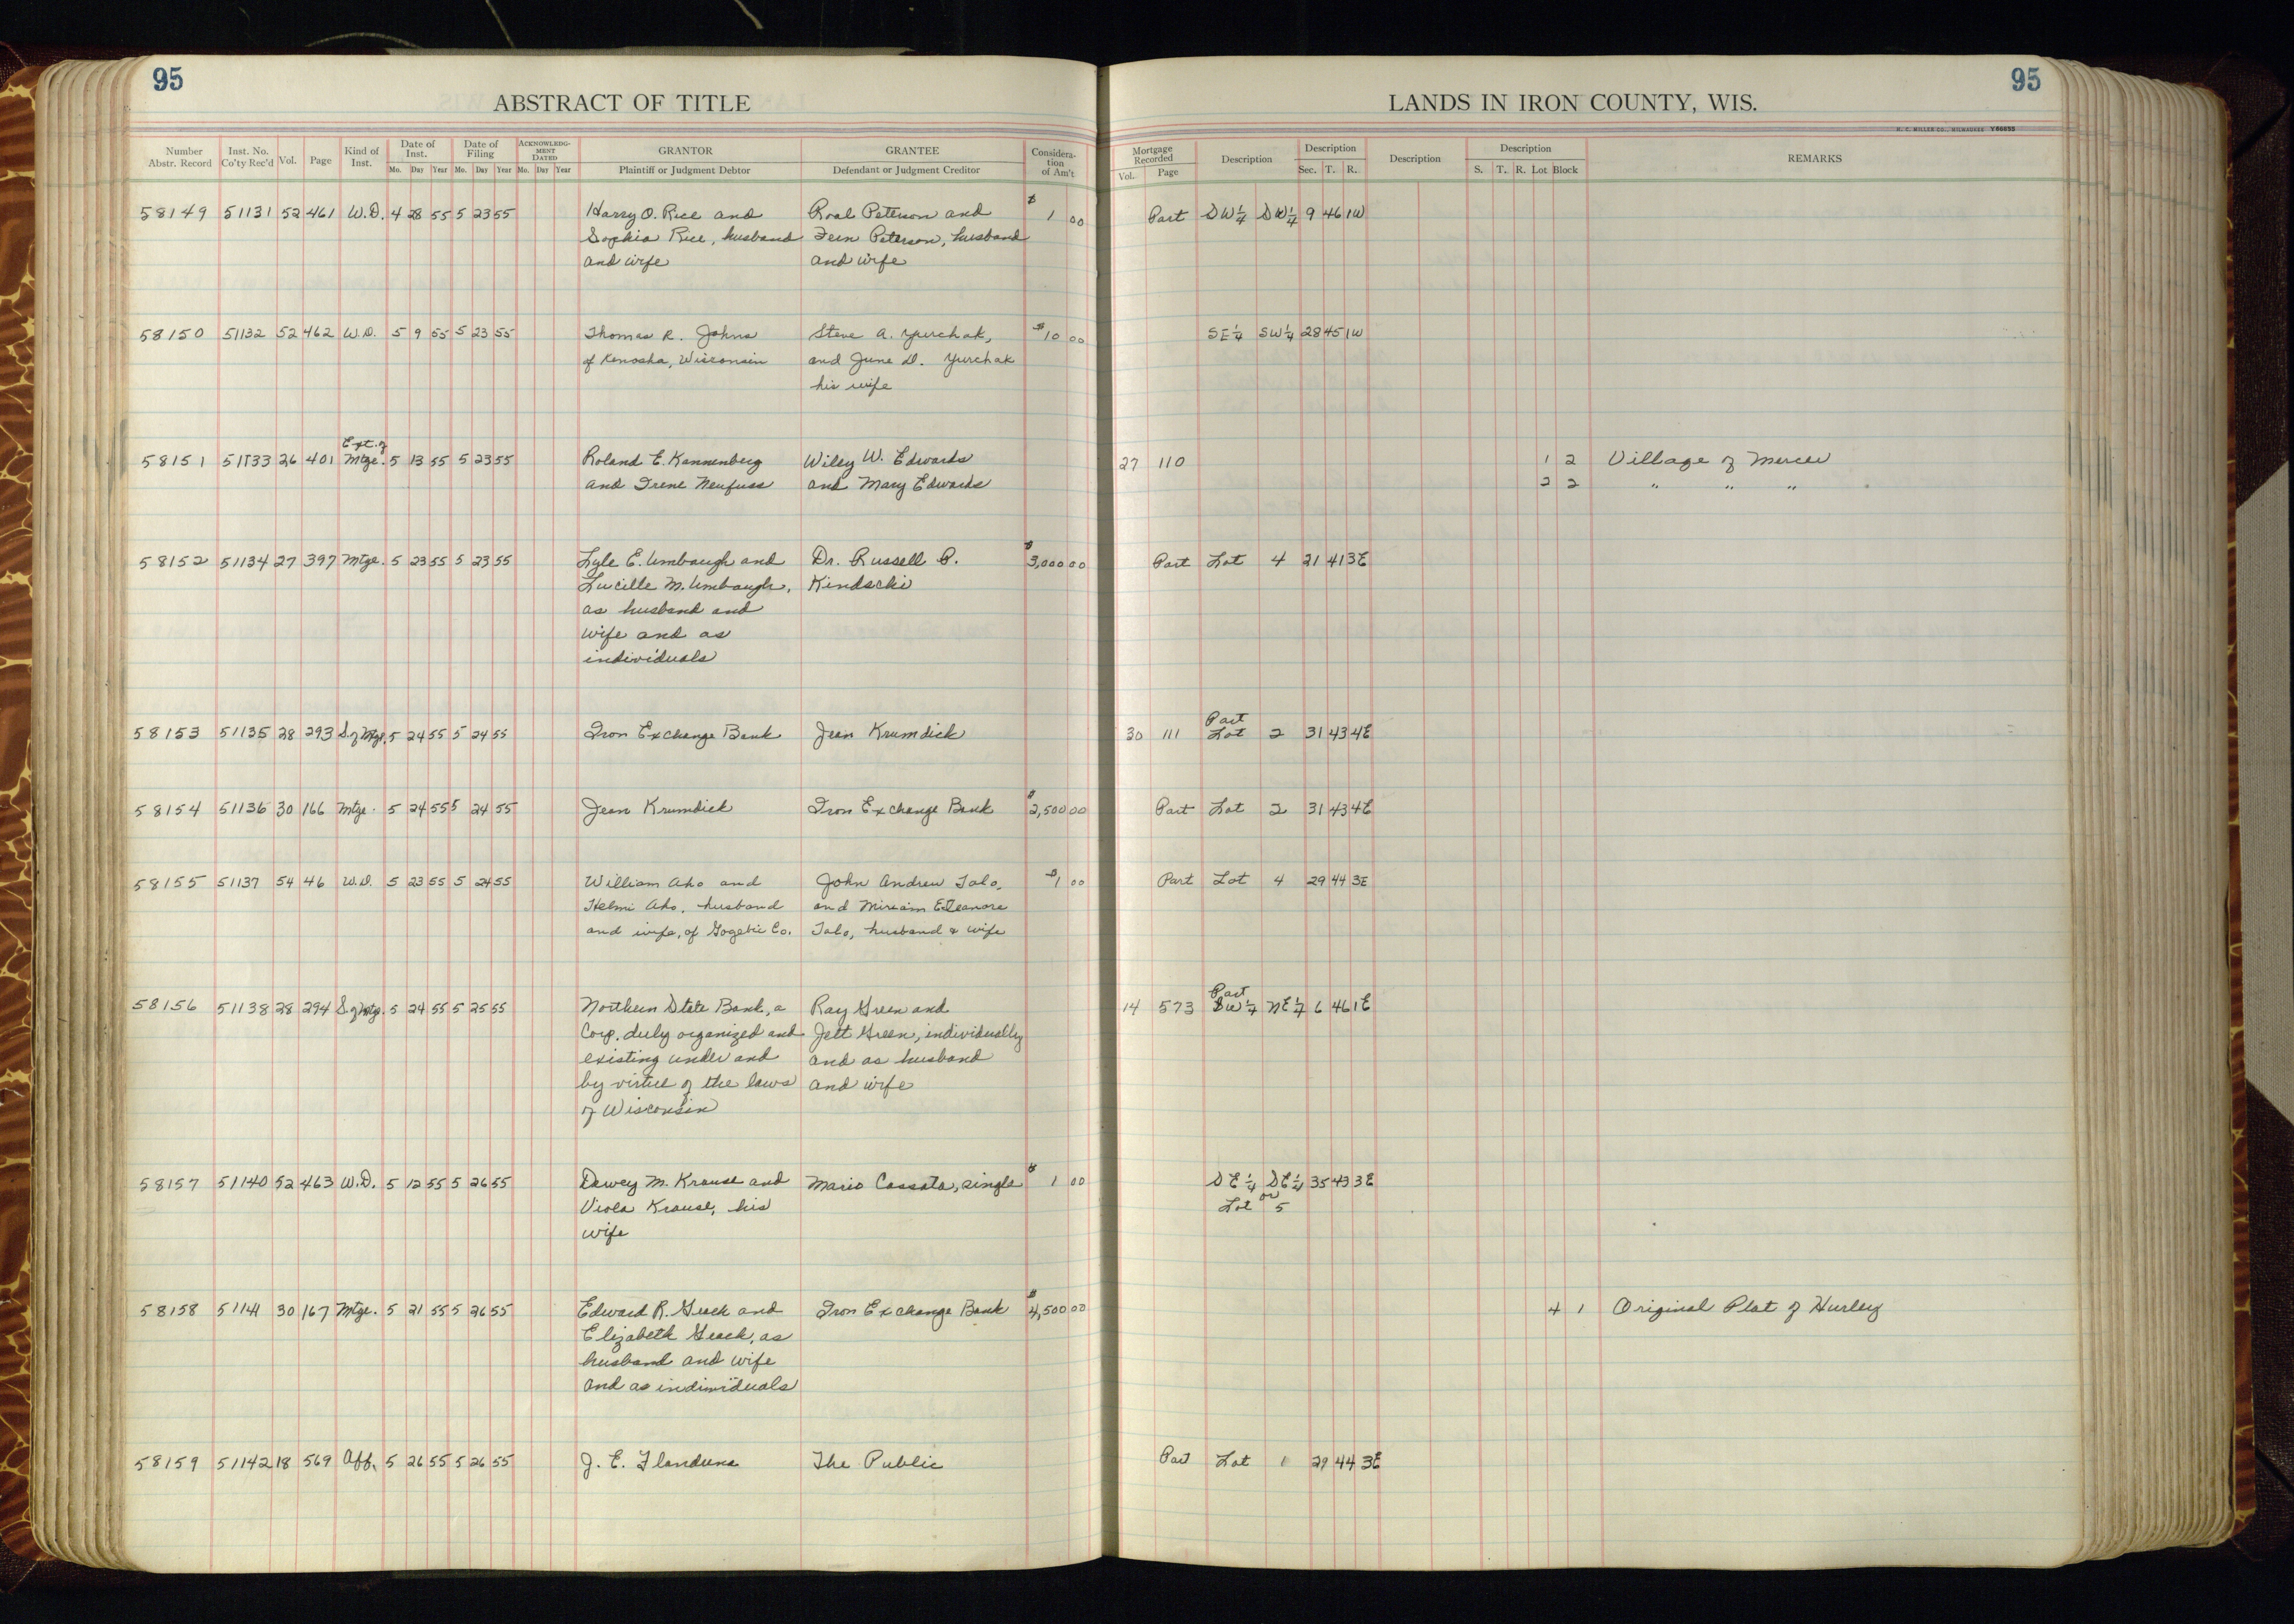 95
95
ABSTRACT OF TITLE
LANDS IN IRON COUNTY, WIS.
H. C. MILLER CO., MILWAUKEE Y86655
Number Abstr. Record Inst. No. Co'ty Rec'd Vol. Page Kind of Inst. Date of Inst. Mo. Day Year Date of Filing Mo. Day Year ACKNOWLEDGMENT DATED Mo. Day Year GRANTOR Plaintiff or Judgment Debtor GRANTEE Defendant or Judgment Creditor Consideration of Am't Mortgage Recorded Vol. Page Description Description Sec. T. R. Description Description S. T. R. Lot Block REMARKS
58149 51131 52 461 W.D. 4 28 55 5 23 55 Harry O. Rice and Roal Peterson and $1 00 Part SW¼ SW¼ 9 46 1W
Sophia Rice, husband Fern Peterson, husband
and wife and wife
58150 51132 52 462 W.D. 5 9 55 5 23 55 Thomas R. Johns Steve A. Yurchak, $10 00 SE¼ SW¼ 28 45 1W
of Kenosha, Wisconsin and June D. Yurchak
his wife
Ext. of
58151 51133 26 401 Mtge. 5 13 55 5 23 55 Roland E. Kannenberg Wiley W. Edwards 27 110 1 2 Village of Mercer
and Irene Neufuss and Mary Edwards 2 2 " " "
58152 51134 27 397 Mtge. 5 23 55 5 23 55 Lyle E. Umbaugh and Dr. Russell P. $3,000 00 Part Lot 4 21 41 3E
Lucille M. Umbaugh, Kindschi
as husband and
wife and as
individuals
Part
58153 51135 28 293 S. of Mtge. 5 24 55 5 24 55 Iron Exchange Bank Jean Krumdick 30 111 Lot 2 31 43 4E
58154 51136 30 166 Mtge. 5 24 55 5 24 55 Jean Krumdick Iron Exchange Bank $2,500 00 Part Lot 2 31 43 4E
58155 51137 54 46 W.D. 5 23 55 5 24 55 William Aho and John Andrew Talo, $1 00 Part Lot 4 29 44 3E
Helmi Aho, husband and Miriam Eleanore
and wife, of Gogebic Co. Talo, husband & wife
Part
58156 51138 28 294 S. of Mtg. 5 24 55 5 25 55 Northern State Bank, a Ray Green and 14 573 SW¼ NE¼ 6 46 1E
Corp. duly organized and Jett Green, individually
existing under and and as husband
by virtue of the laws and wife
of Wisconsin
58157 51140 52 463 W.D. 5 12 55 5 26 55 Dewey M. Krause and Mario Cassata, single $1 00 SE¼ SE¼ 35 43 3E
Viola Krause, his Lot or 5
wife
58158 51141 30 167 Mtge. 5 21 55 5 26 55 Edward R. Geach and Iron Exchange Bank $4,500 00 4 1 Original Plat of Hurley
Elizabeth Geach, as
husband and wife
and as individuals
58159 51142 18 569 Aff. 5 26 55 5 26 55 J. E. Flandrena The Public Part Lot 1 29 44 3E